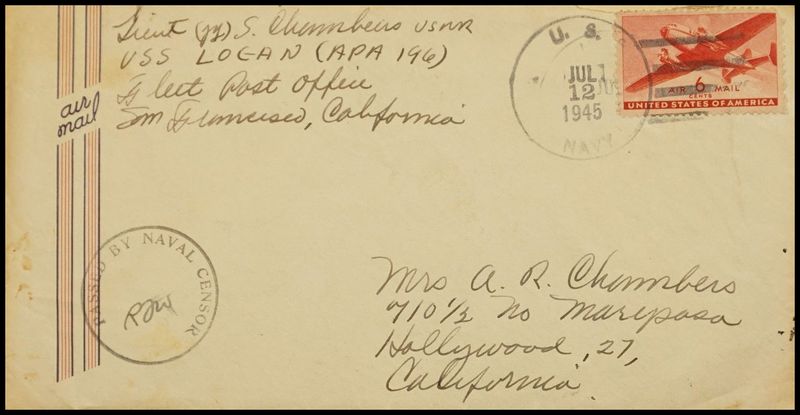 Lieut (jg) S. Chambers USNR
USS LOGAN (APA 196)
Fleet Post Office
San Francisco, California
air
mail
U. S.
JUL
12
1945
NAVY
AIR 6 MAIL
CENTS
UNITED STATES OF AMERICA
PASSED BY NAVAL CENSOR
Mrs A. R. Chambers
710½ No Mariposa
Hollywood, 27,
California